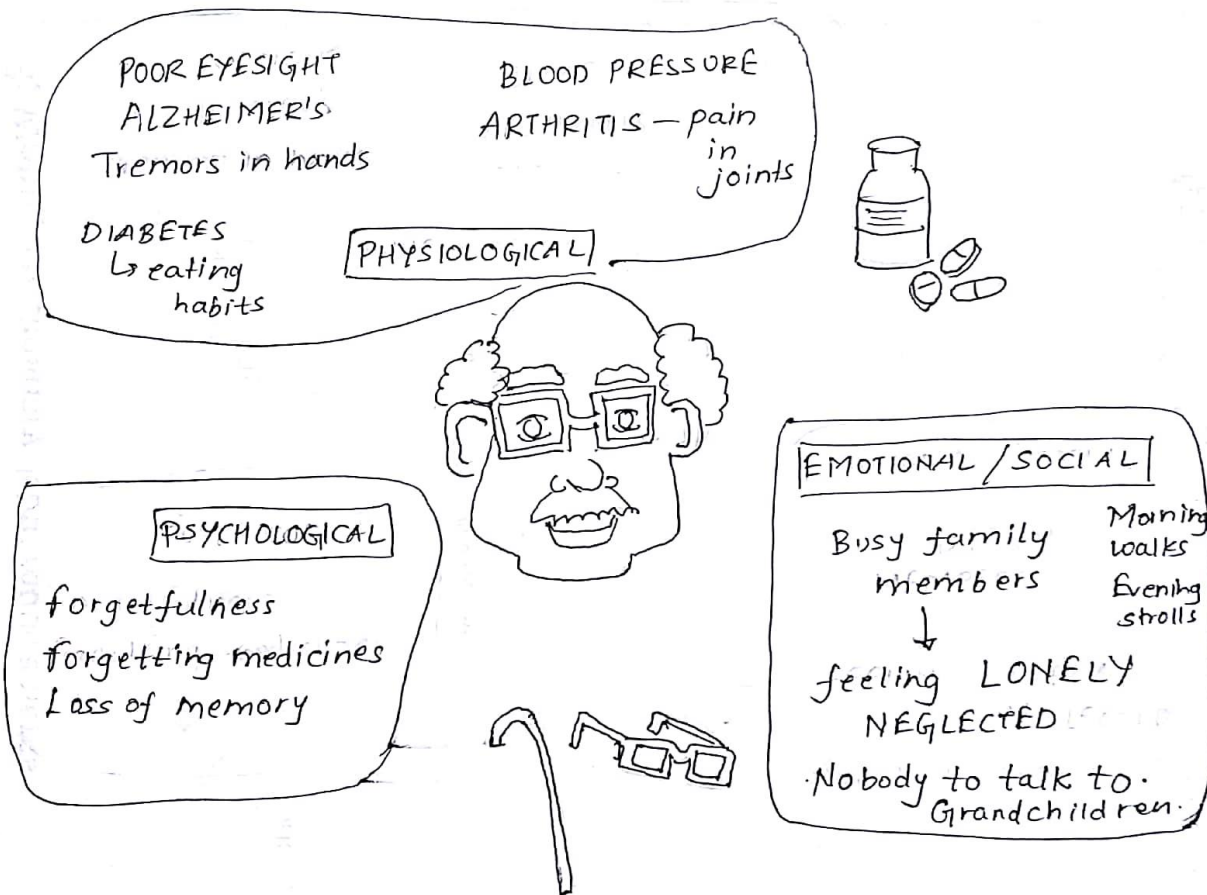 POOR EYESIGHT
ALZHEIMER'S
Tremors in hands
DIABETES
↳ eating
habits
BLOOD PRESSURE
ARTHRITIS — pain
in
joints
PHYSIOLOGICAL
PSYCHOLOGICAL
forgetfulness
forgetting medicines
Loss of memory
EMOTIONAL / SOCIAL
Busy family
members
↓
feeling LONELY
NEGLECTED
Morning
walks
Evening
strolls
·Nobody to talk to·
Grandchildren·